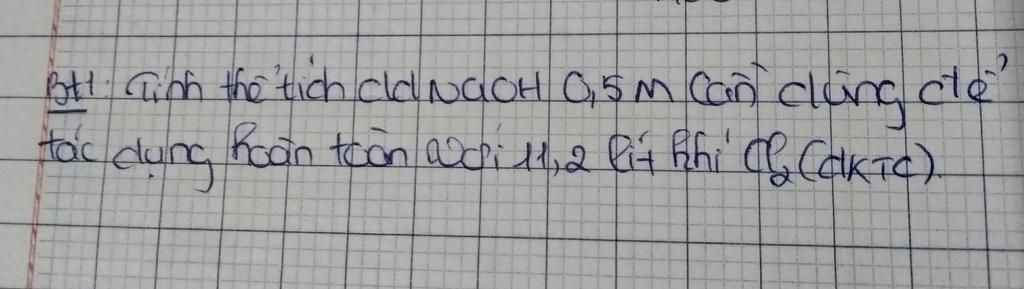 Bt1: Tính thể tích dd NaOH 0,5M cần dùng để
tác dụng hoàn toàn với 11,2 lít khí Cl2 (đktc).